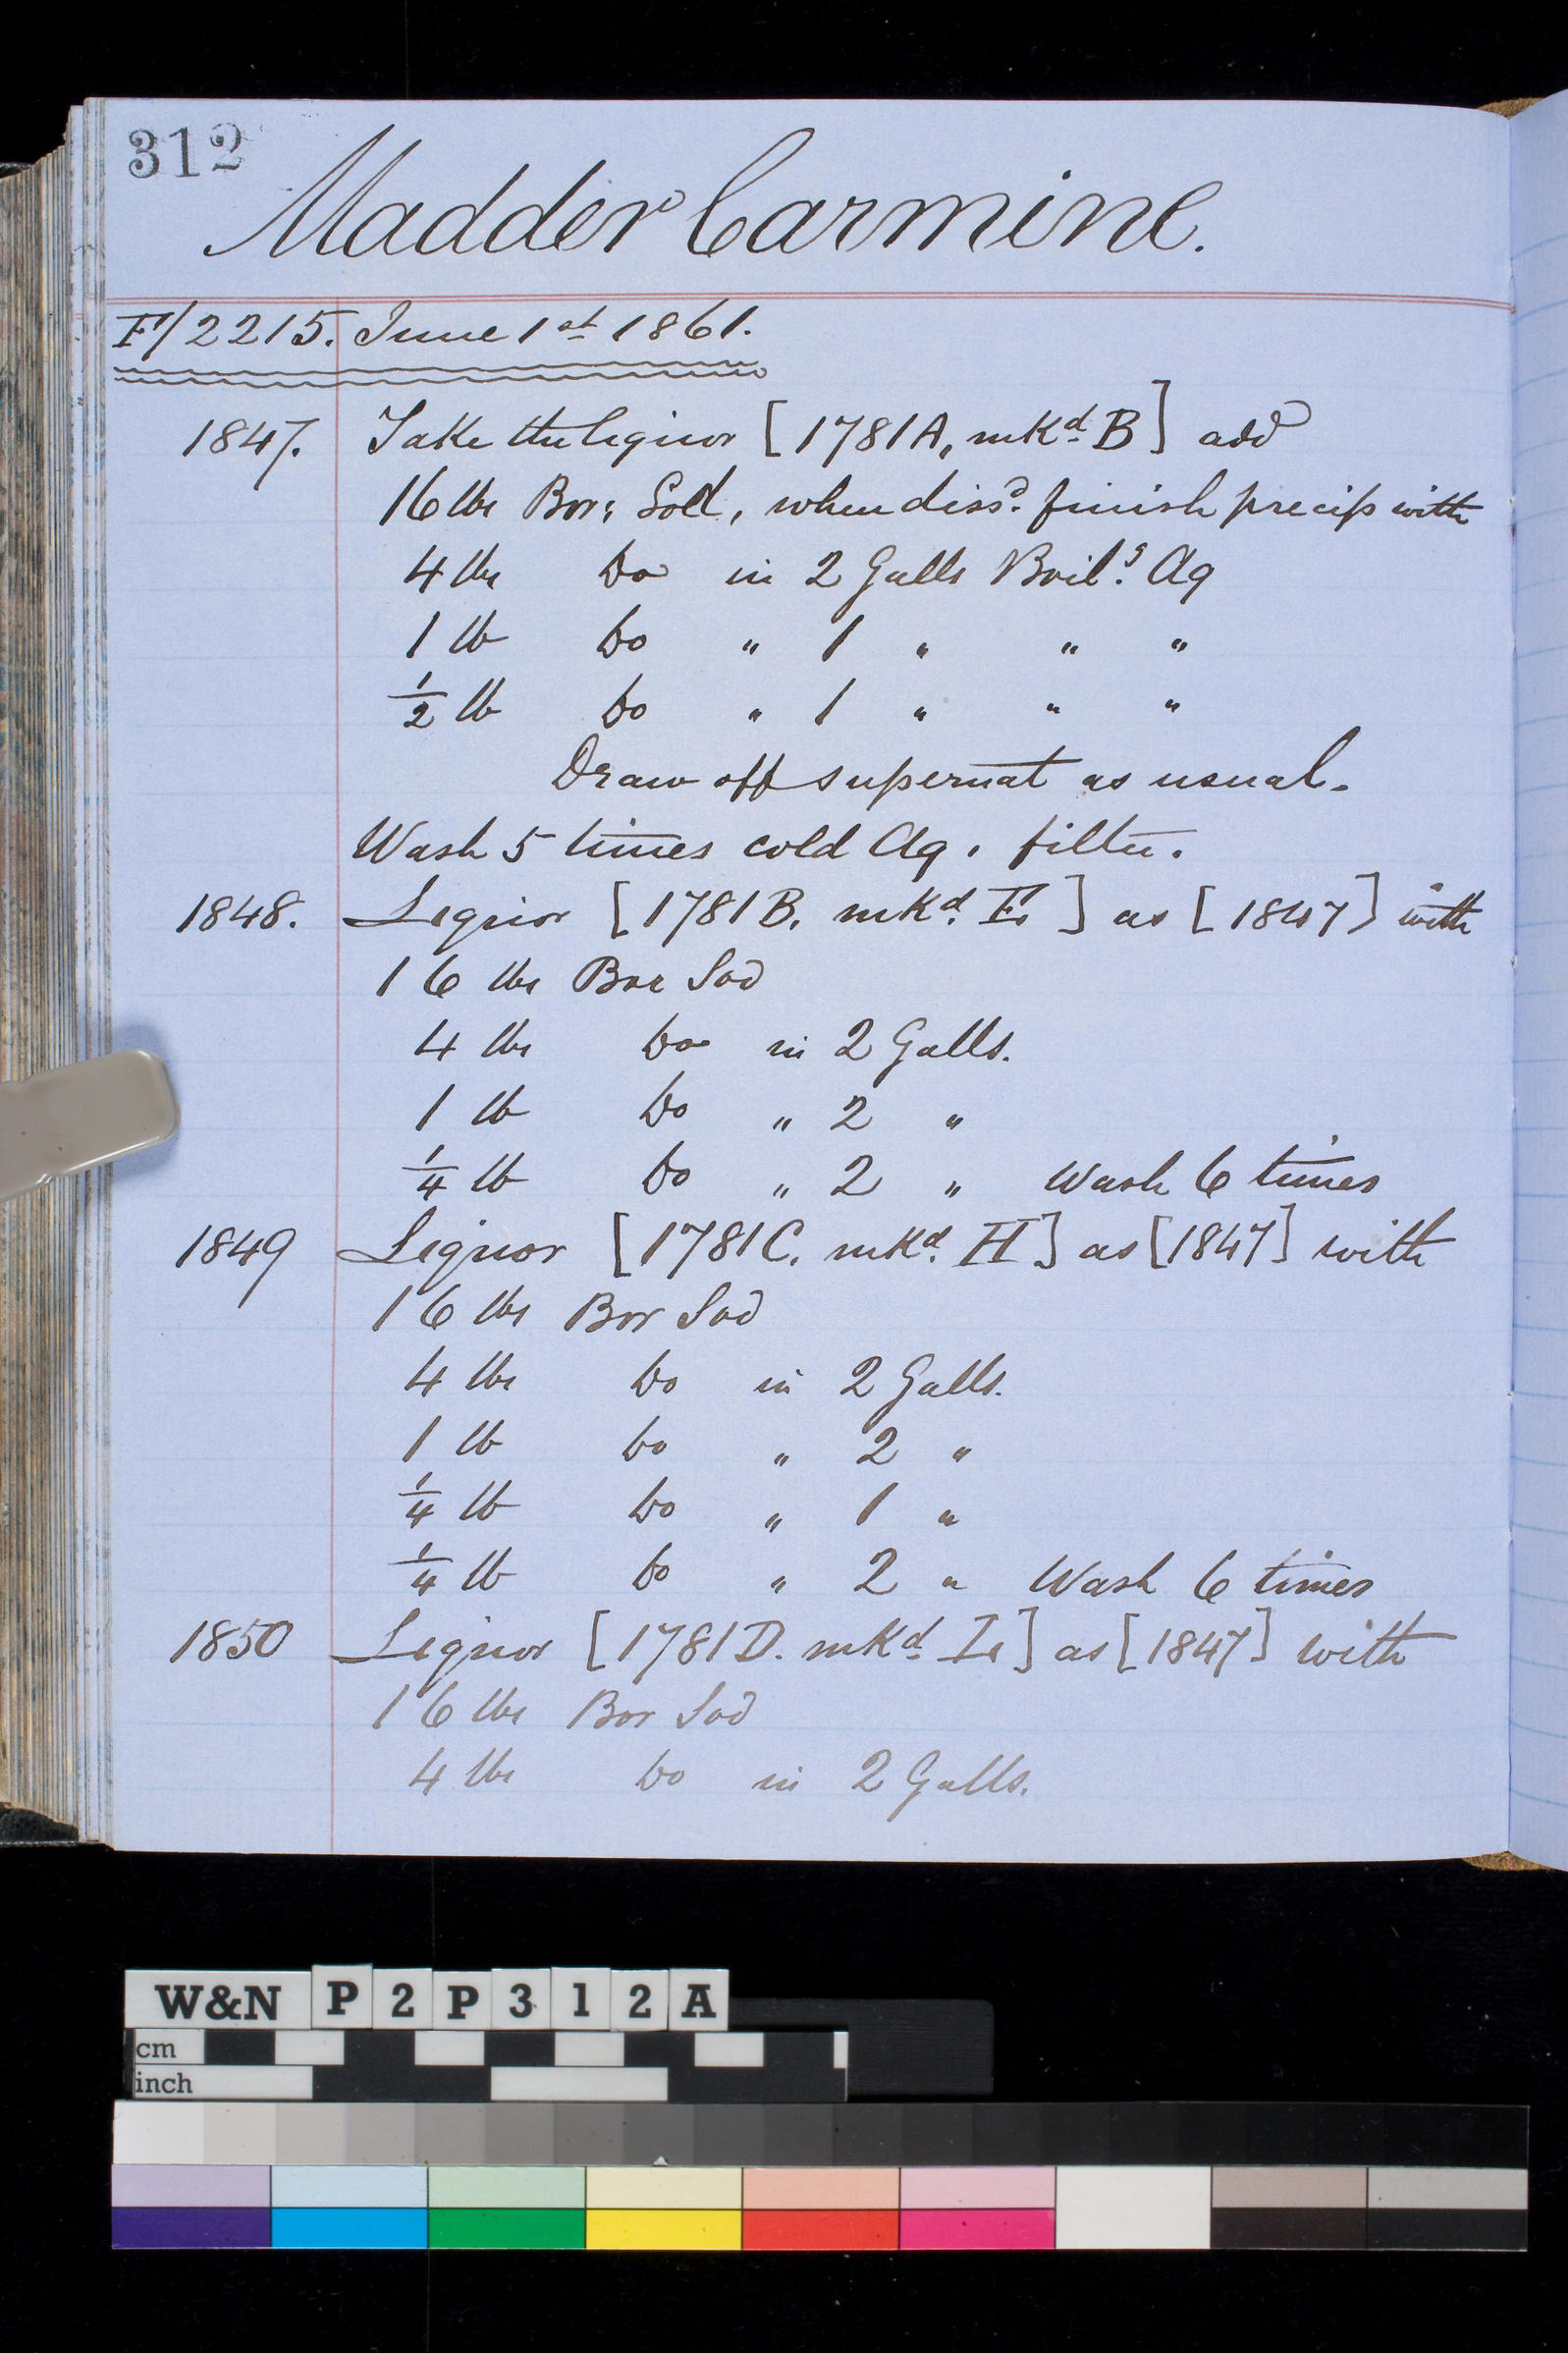 312
Madder Carmine.
F/2215. June 1st 1861.
1847. Take the liquor [1781A, mkd B] add
16 lbs Bor: Sod, when dissd. finish precip with
4 lbs Do in 2 Galls Boilg. Aq
1 lb Do " 1 " " "
1/2 lb Do " 1 " " "
Draw off supernat as usual.
Wash 5 times cold Aq. filter.
1848. Liquor [1781B. mkd. E.] as [1847] with
16 lbs Bor Sod
4 lbs Do in 2 Galls.
1 lb Do " 2 "
1/4 lb Do " 2 " Wash 6 times
1849 Liquor [1781C. mkd. H] as [1847] with
16 lbs Bor Sod
4 lbs Do in 2 Galls.
1 lb Do " 2 "
1/4 lb Do " 1 "
1/4 lb Do " 2 " Wash 6 times
1850 Liquor [1781D. mkd.] as [1847] with
16 lbs Bor Sod
4 lbs Do in 2 Galls.
W&N P2P312A
cm
inch